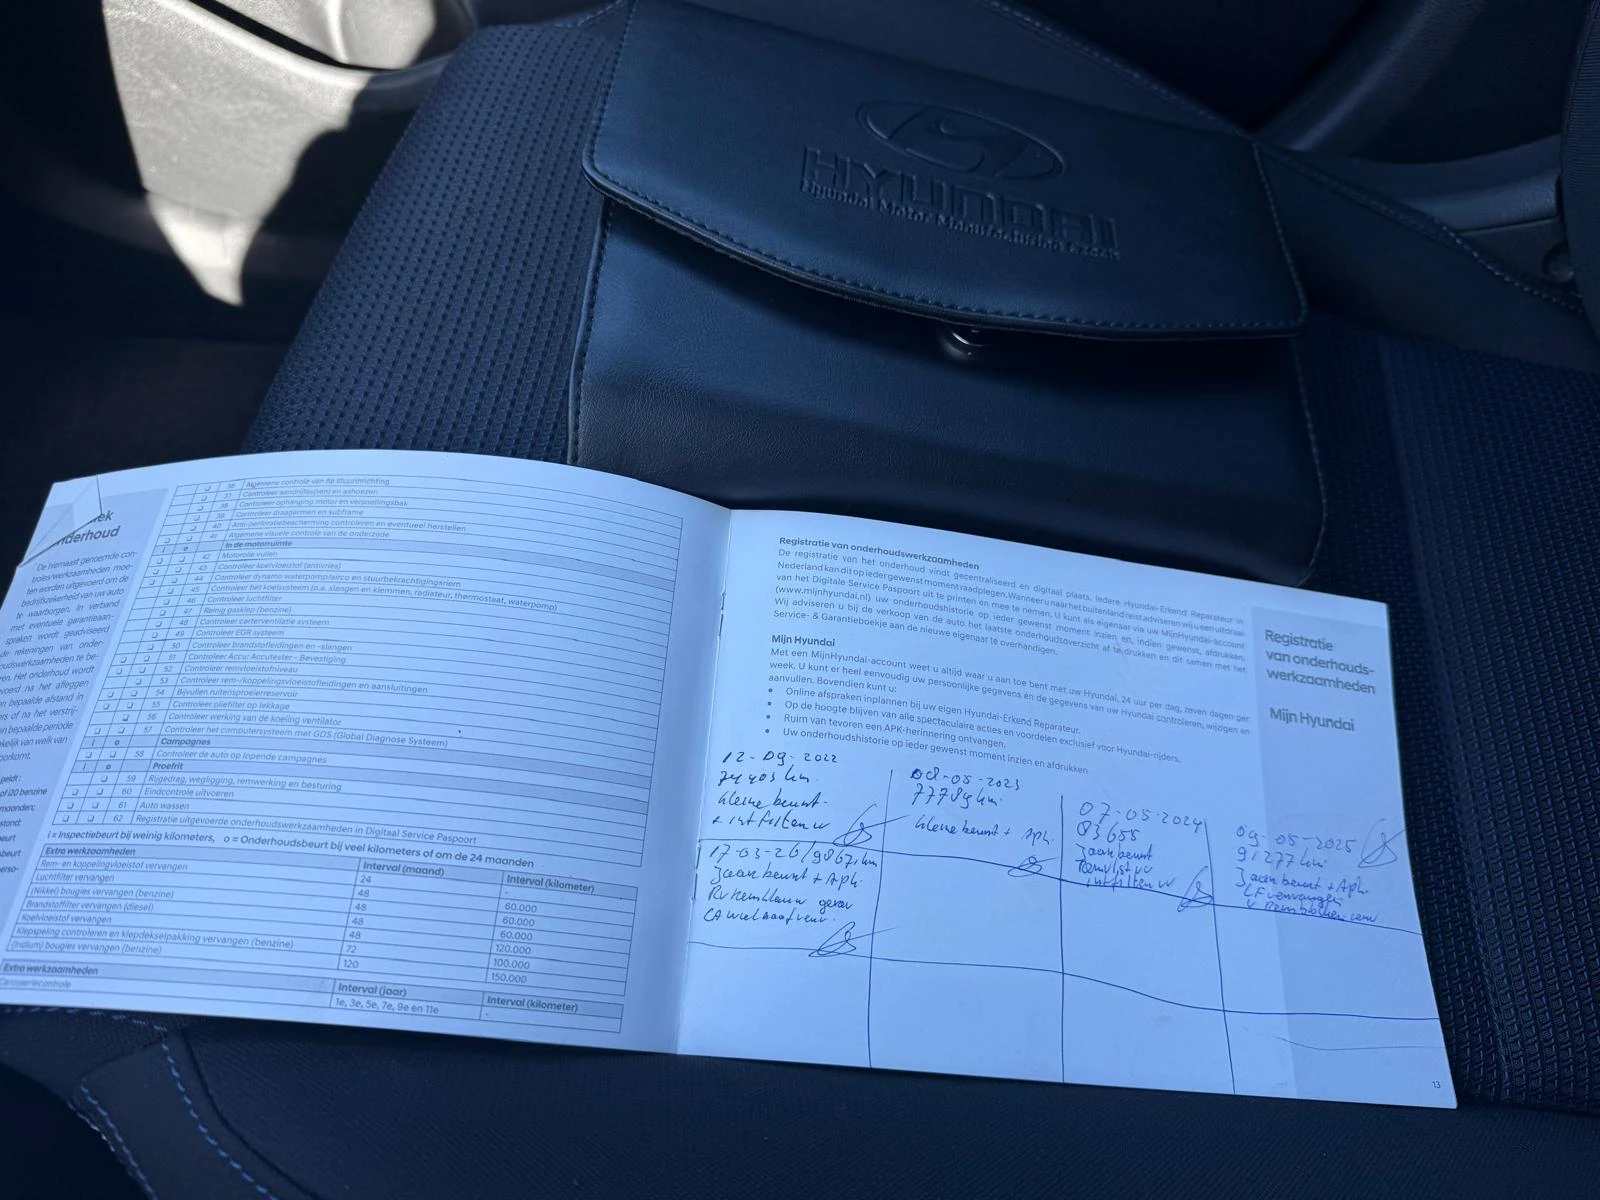 HYUNDAI
Hyundai Motor Manufacturing Czech
onderhoud
De hiernaast genoemde con-
troles/werkzaamheden moe-
ten worden uitgevoerd om de
bedrijfszekerheid van uw auto
te waarborgen. In verband
met eventuele garantieaan-
spraken wordt geadviseerd
de rekeningen van onder-
houdswerkzaamheden te be-
36 Algemene controle van de stuurinrichting
37 Controleer aandrijfas(sen) en ashoezen
38 Controleer ophanging motor en versnellingsbak
39 Controleer draagarmen en subframe
40 Anti-perforatiebescherming controleren en eventueel herstellen
41 Algemene visuele controle van de onderzijde
i o In de motorruimte
42 Motorolie vullen
43 Controleer koelvloeistof (antivries)
44 Controleer dynamo waterpomp/airco en stuurbekrachtigingsriem
45 Controleer het koelsysteem (o.a. slangen en klemmen, radiateur, thermostaat, waterpomp)
46 Controleer luchtfilter
47 Reinig gasklep (benzine)
48 Controleer carterventilatie systeem
49 Controleer EGR systeem
50 Controleer brandstofleidingen en -slangen
51 Controleer Accu: Accutester - Bevestiging
52 Controleer remvloeistofniveau
53 Controleer rem-/koppelingsvloeistofleidingen en aansluitingen
54 Bijvullen ruitensproeierreservoir
55 Controleer oliefilter op lekkage
56 Controleer werking van de koeling ventilator
57 Controleer het computersysteem met GDS (Global Diagnose Systeem)
i o Campagnes
58 Controleer de auto op lopende campagnes
i o Proefrit
59 Rijgedrag, wegligging, remwerking en besturing
60 Eindcontrole uitvoeren
61 Auto wassen
62 Registratie uitgevoerde werkzaamheden in Digitaal Service Paspoort
i = Inspectiebeurt bij weinig kilometers, o = Onderhoudsbeurt bij veel kilometers of om de 24 maanden
Extra werkzaamheden Interval (maand) Interval (kilometer)
Rem- en koppelingvloeistof vervangen 24 -
Luchtfilter vervangen 48 60.000
(Nikkel) bougies vervangen (benzine) 48 60.000
Brandstoffilter vervangen (diesel) 48 60.000
Koelvloeistof vervangen 48 120.000
Klepspeling controleren en klepdekselpakking vervangen (benzine) 72 100.000
(Iridium) bougies vervangen (benzine) 120 150.000
Extra werkzaamheden Interval (jaar) Interval (kilometer)
Carosseriecontrole 1e, 3e, 5e, 7e, 9e en 11e -
Registratie van onderhoudswerkzaamheden
De registratie van het onderhoud vindt gecentraliseerd en digitaal plaats. Iedere Hyundai-Erkend Reparateur in
Nederland kan dit op ieder gewenst moment raadplegen. Wanneer u naar het buitenland reist adviseren wij u een uitdraai
van het Digitale Service Paspoort uit te printen en mee te nemen. U kunt als eigenaar via uw MijnHyundai-account
(www.mijnhyundai.nl) uw onderhoudshistorie op ieder gewenst moment inzien en, indien gewenst, afdrukken.
Wij adviseren u bij de verkoop van de auto het laatste onderhoudsoverzicht af te drukken en dit samen met het
Service- & Garantieboekje aan de nieuwe eigenaar te overhandigen.
Mijn Hyundai
Met een MijnHyundai-account weet u altijd waar u aan toe bent met uw Hyundai, 24 uur per dag, zeven dagen per
week. U kunt er heel eenvoudig uw persoonlijke gegevens én de gegevens van uw Hyundai controleren, wijzigen en
aanvullen. Bovendien kunt u:
• Online afspraken inplannen bij uw eigen Hyundai-Erkend Reparateur.
• Op de hoogte blijven van alle spectaculaire acties en voordelen exclusief voor Hyundai-rijders.
• Ruim van tevoren een APK-herinnering ontvangen.
• Uw onderhoudshistorie op ieder gewenst moment inzien en afdrukken
Registratie
van onderhouds-
werkzaamheden
Mijn Hyundai
12-09-2022
74403 km.
kleine beurt.
+ intfilter vv
08-05-2023
77789 km.
kleine beurt + Apk.
07-05-2024
83655
Jaarbeurt
Remvlst vv
intfilter vv
09-05-2025
91277 km
Jaarbeurt + Apk.
LF vervangen
V Remblokken verv
17-03-26/98671 km
Jaarbeurt + Apk.
13